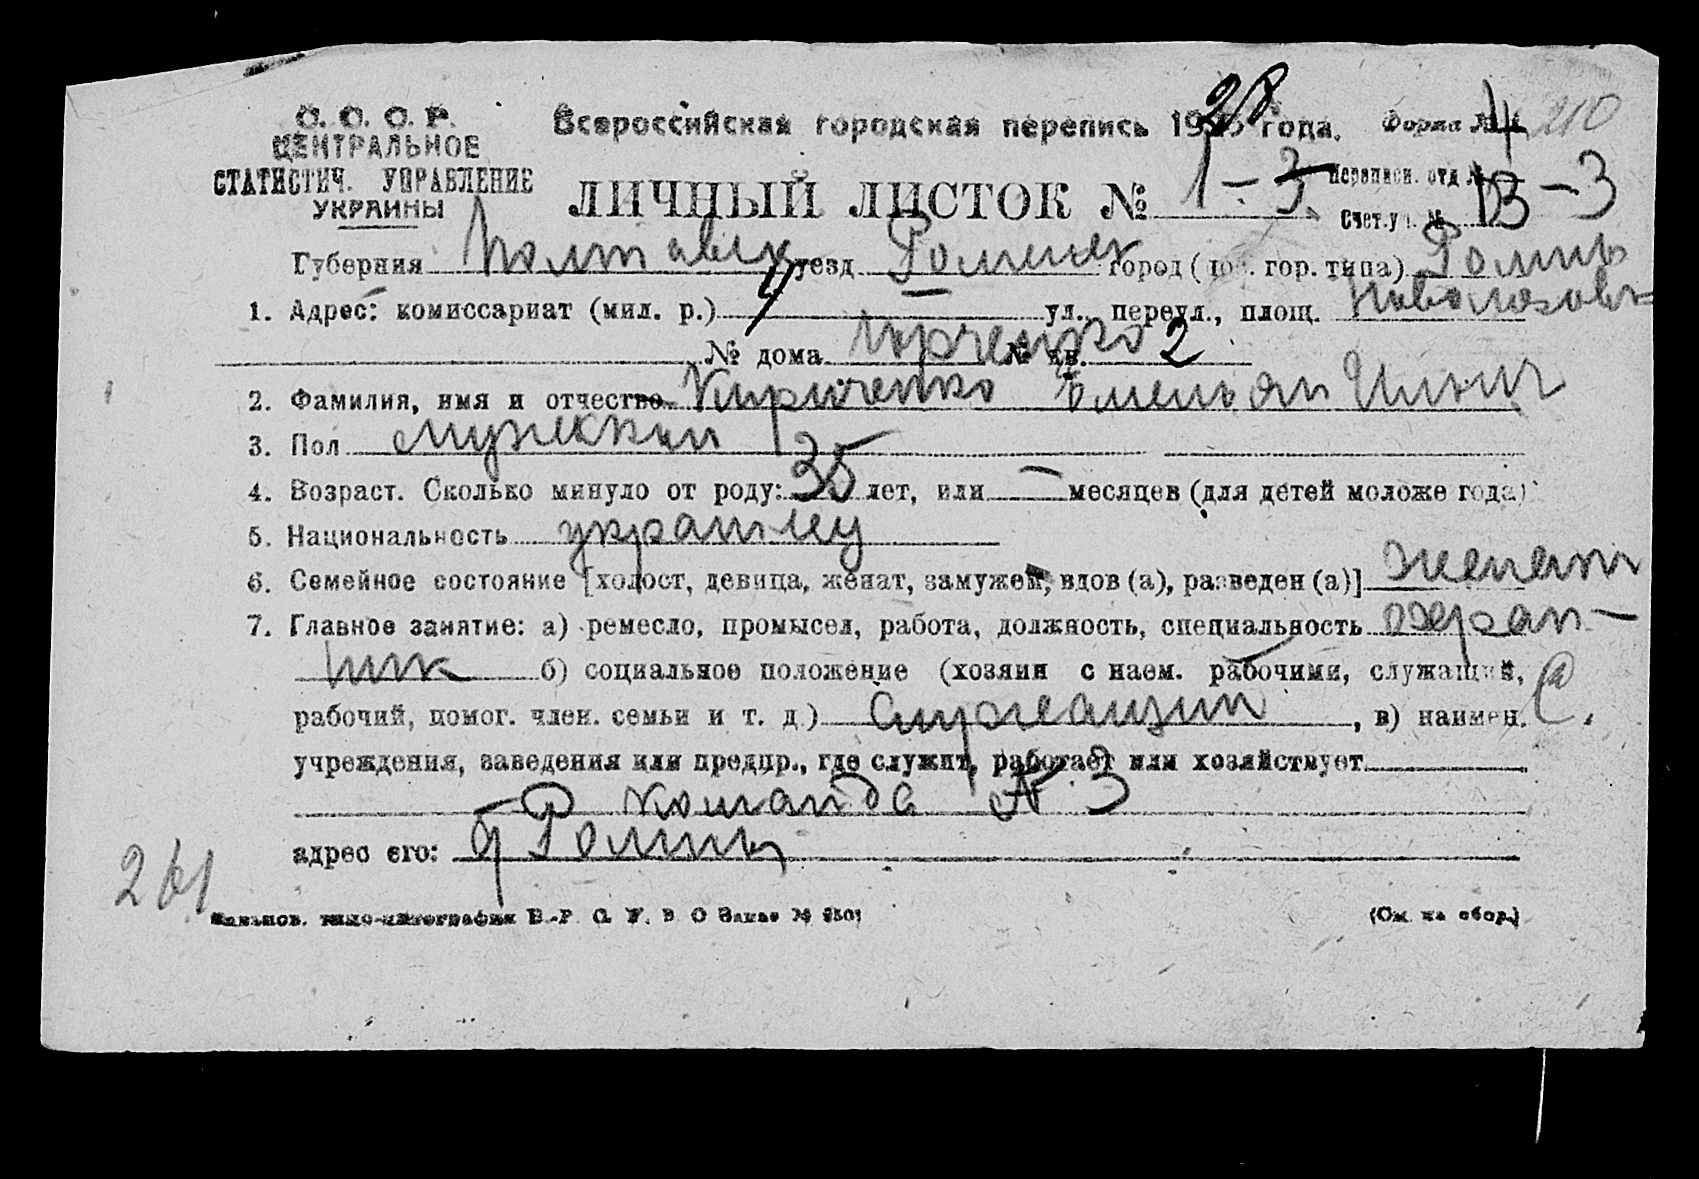 С. С. С. Р.
ЦЕНТРАЛЬНОЕ
СТАТИСТИЧ. УПРАВЛЕНИЕ
УКРАИНЫ
Всероссийская городская перепись 1923 года. Форма № 4 210
ЛИЧНЫЙ ЛИСТОК № 1-3 Переписн. отд №
Счет.уч. № 13-3
Губерния Полтавск уезд Роменск город (пос. гор. типа) Ромны
1. Адрес: комиссариат (мил. р.) ул., переул., площ.
№ дома Юрченко № кв. 2
2. Фамилия, имя и отчество Кириченко Емельян Ильич
3. Пол мужской
4. Возраст. Сколько минуло от роду: 35 лет, или — месяцев (для детей моложе года)
5. Национальность украинец
6. Семейное состояние [холост, девица, женат, замужем, вдов (а), разведен (а)] женат
7. Главное занятие: а) ремесло, промысел, работа, должность, специальность охран-
ник б) социальное положение (хозяин с наем. рабочими, служащий,
рабочий, помог. член. семьи и т. д.) служащий, в) наимен.
учреждения, заведения или предпр., где служит, работает или хозяйствует
команда № 3
адрес его: г Ромны
261
типо-литография В.-Р. О. У. В О Заказ №
(См. на обор.)